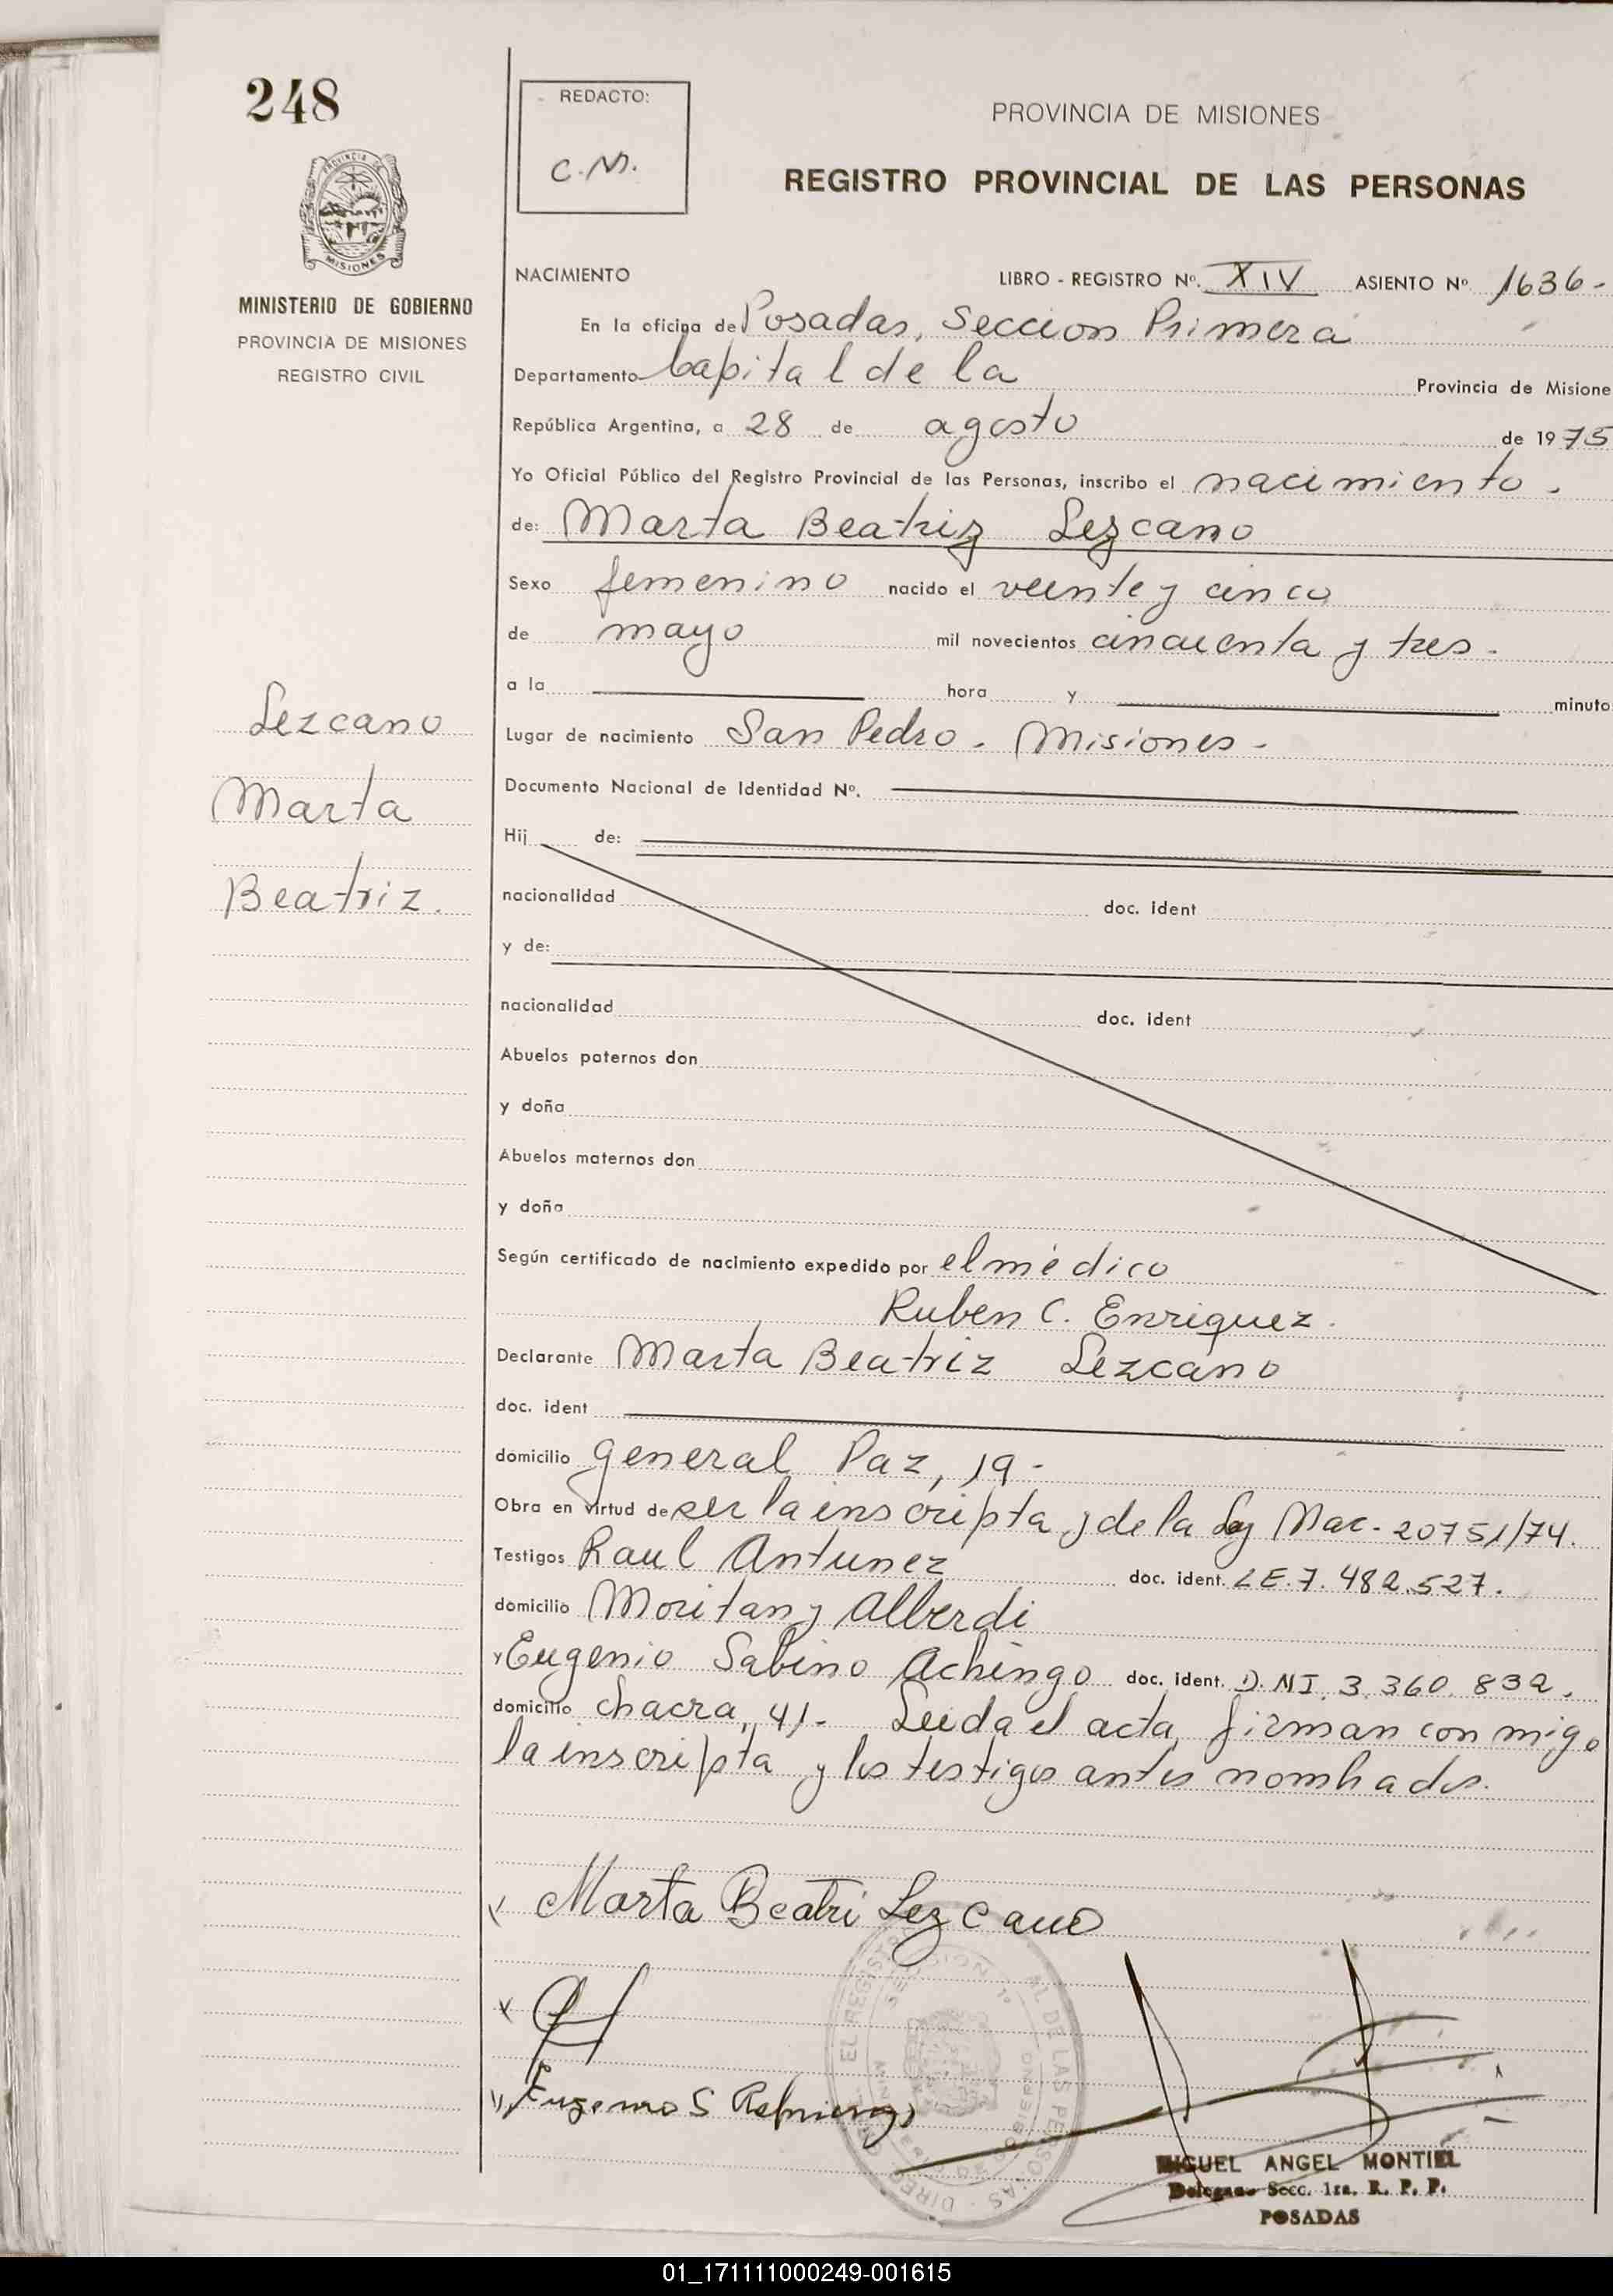 248
REDACTO:
C.M.
PROVINCIA DE MISIONES
REGISTRO PROVINCIAL DE LAS PERSONAS
PROVINCIA DE
MISIONES
MINISTERIO DE GOBIERNO
PROVINCIA DE MISIONES
REGISTRO CIVIL
NACIMIENTO LIBRO - REGISTRO Nº. XIV ASIENTO Nº 1636-
En la oficina de Posadas, Seccion Primera
Departamento Capital de la Provincia de Misione
República Argentina, a 28 de agosto de 1975
Yo Oficial Público del Registro Provincial de las Personas, inscribo el nacimiento.
de: Marta Beatriz Lezcano
Sexo femenino nacido el veinte y cinco
de mayo mil novecientos cincuenta y tres -
a la hora y minuto
Lugar de nacimiento San Pedro - Misiones -
Documento Nacional de Identidad Nº.
Hij de:
nacionalidad doc. ident
y de:
nacionalidad doc. ident
Abuelos paternos don
y doña
Abuelos maternos don
y doña
Según certificado de nacimiento expedido por el médico
Ruben C. Enriquez.
Declarante Marta Beatriz Lezcano
doc. ident
domicilio General Paz, 19 -
Obra en virtud de ser la inscripta y de la Ley Nac. 20751/74.
Testigos Raul Antunez doc. ident. LE.7.482.527.
domicilio Moritan y Alberdi
y Eugenio Sabino Achingo doc. ident. D.NI.3.360.832.
domicilio chacra, 41- Leida el acta, firman con migo
la inscripta y los testigos antes nombrados.
Lezcano
Marta
Beatriz.
Marta Beatri Lezcano
Eugenio S
MIGUEL ANGEL MONTIEL
Delegado Secc. 1ra. R. P. P.
POSADAS
01_171111000249-001615